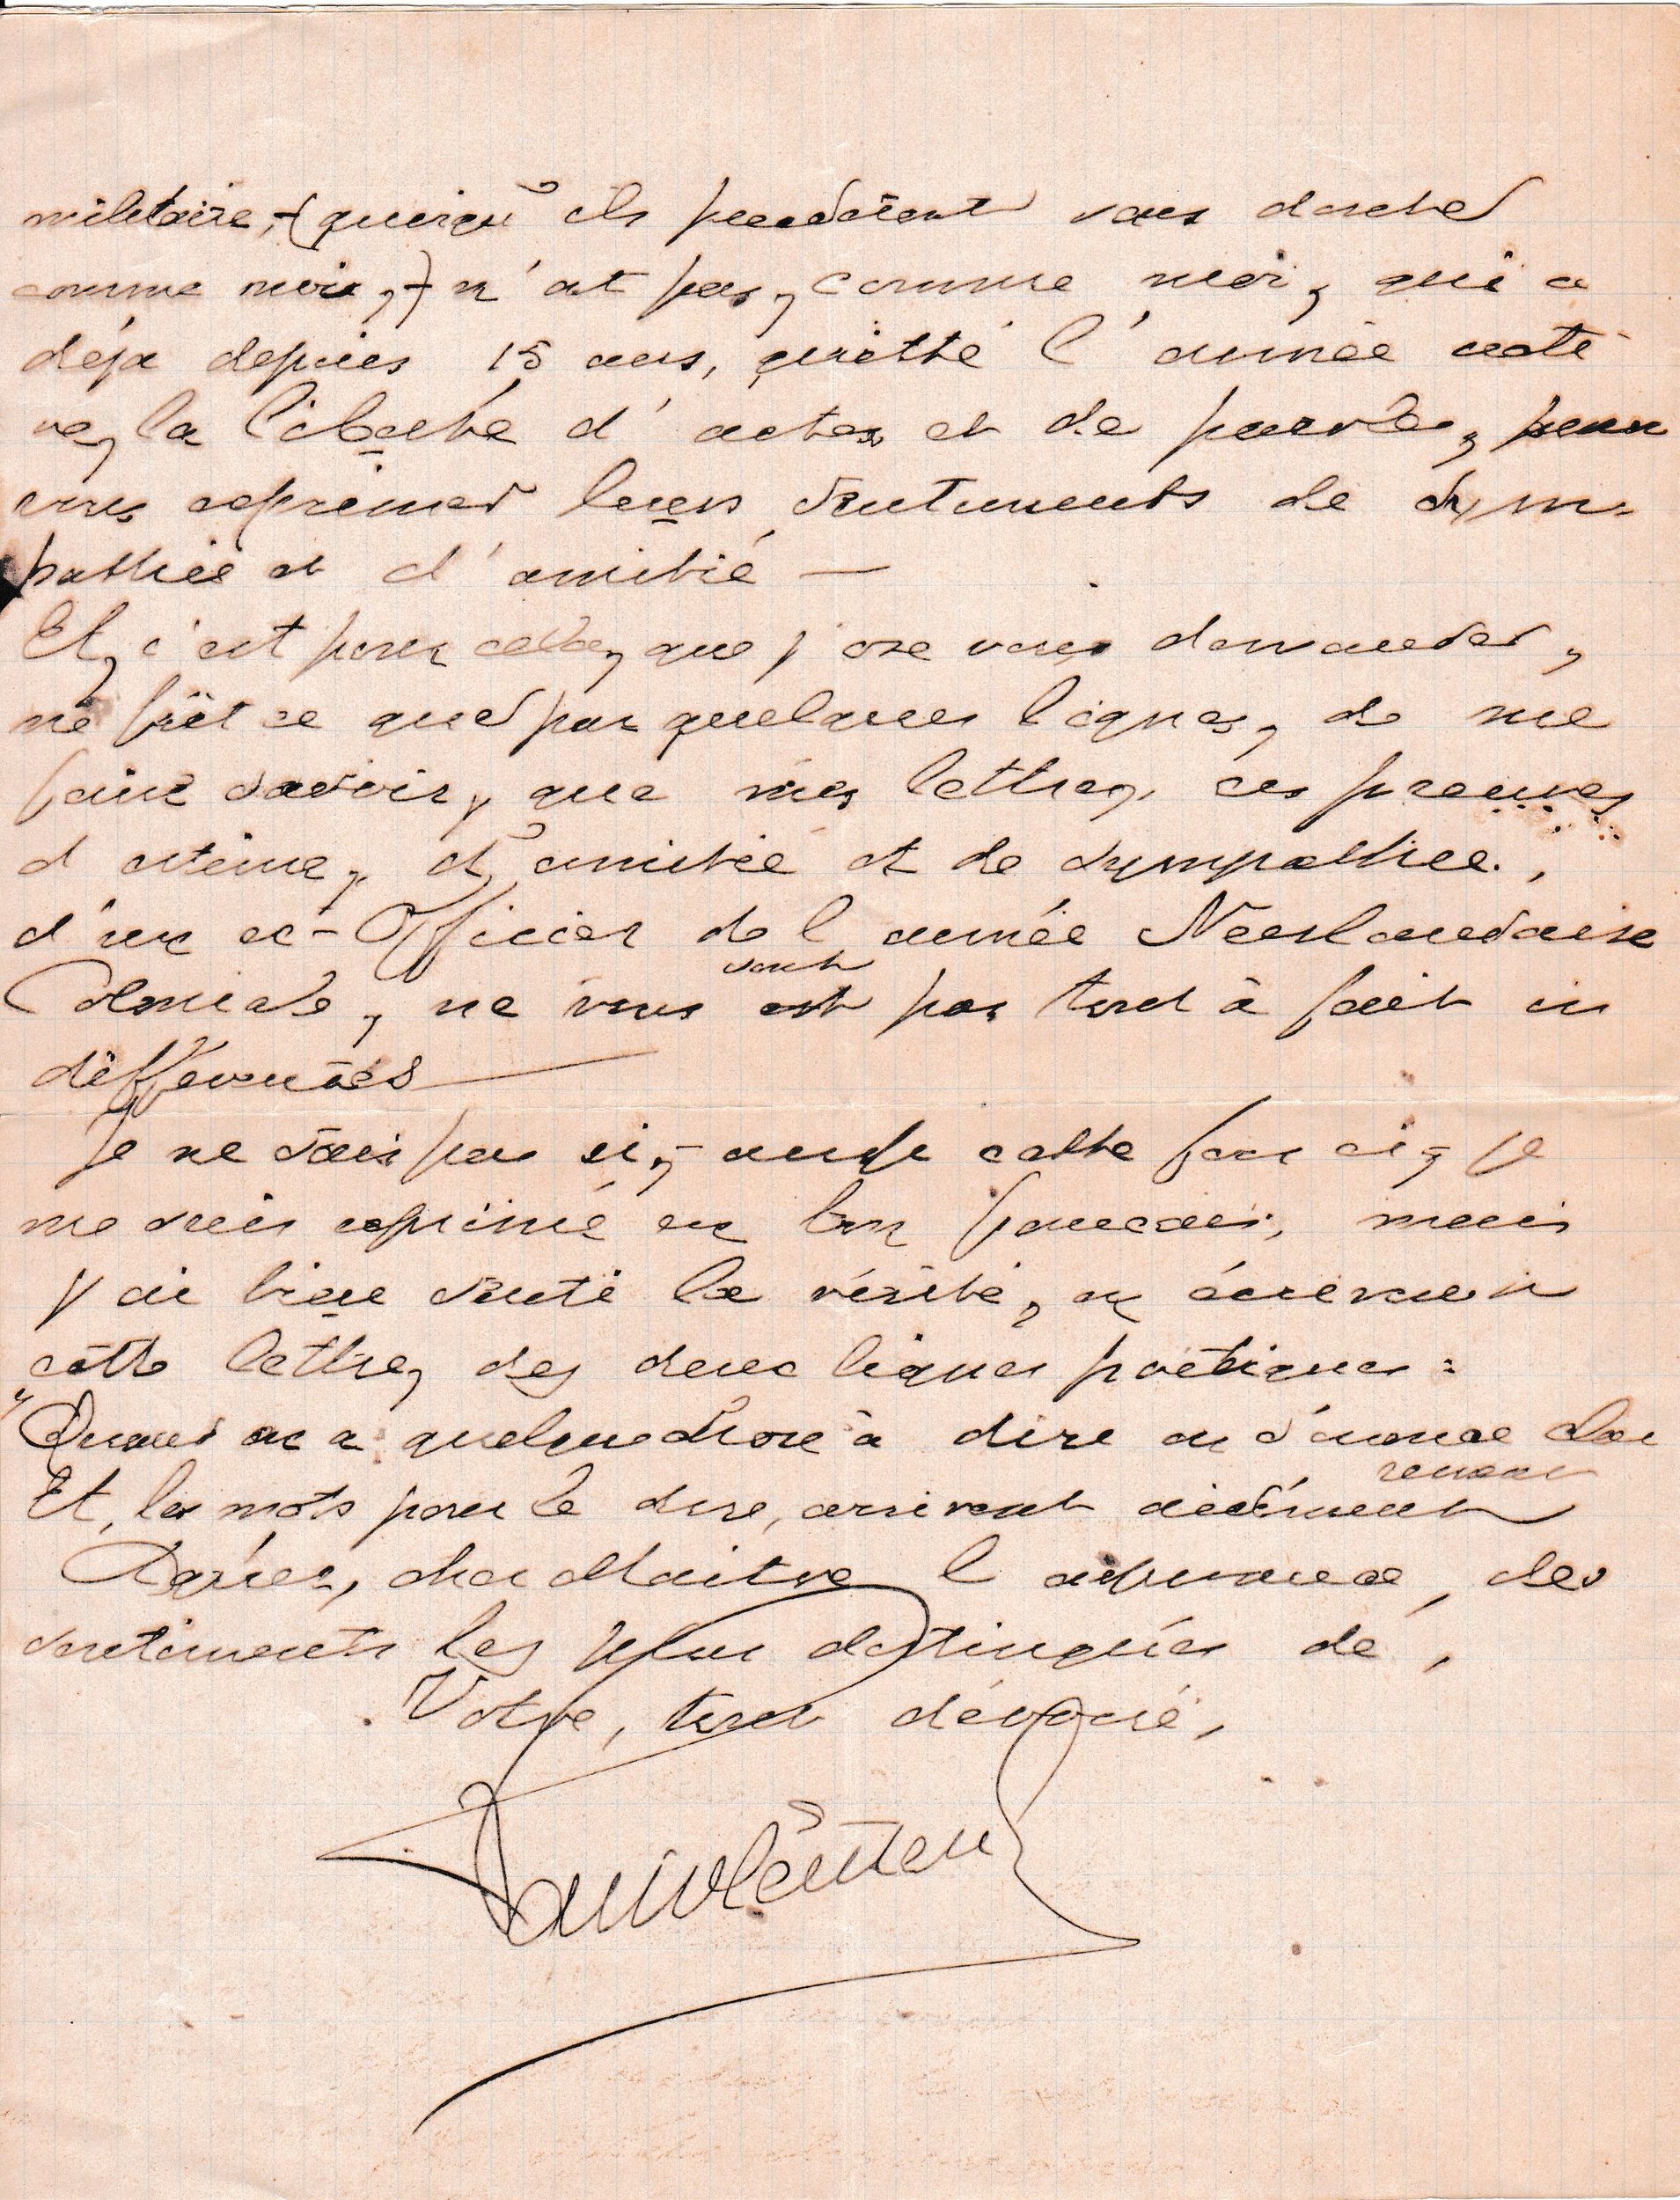 militaire, - (quoiqu'ils
comme moi,) - n'at pas, comme moi, qui a
déja depuis 15 ans, quitté l'armée acti
ve, la liberté d'actes et de parole, pour
vous exprimer leurs sentiments de sym=
pathie et d'amitié —
Et, c'est pour cela, que j'ose vous demander,
ne fût ce que par quelques lignes, de me
faire savoir, que mes lettres, ces preuves
d'estime, d'amitié et de sympathie,
d'un ex-Officier de l'armée Néerlandaise
sont
Coloniale, ne vous est pas tout à fait in
differentes —
Je ne sais pas si, - cette fois ci, je
me suis exprimé en bon francais, mais
j'ai bien senti la vérité, en écrivant
cette lettre, des deux lignes poëtiques:
"Quand on a quelque chose à dire on s'
Et, les mots pour le dire, arrivent aisément
Agréez, cher Maitre l'expression, des
sentiments les plus distingués de,
Votre, tout dévoué,